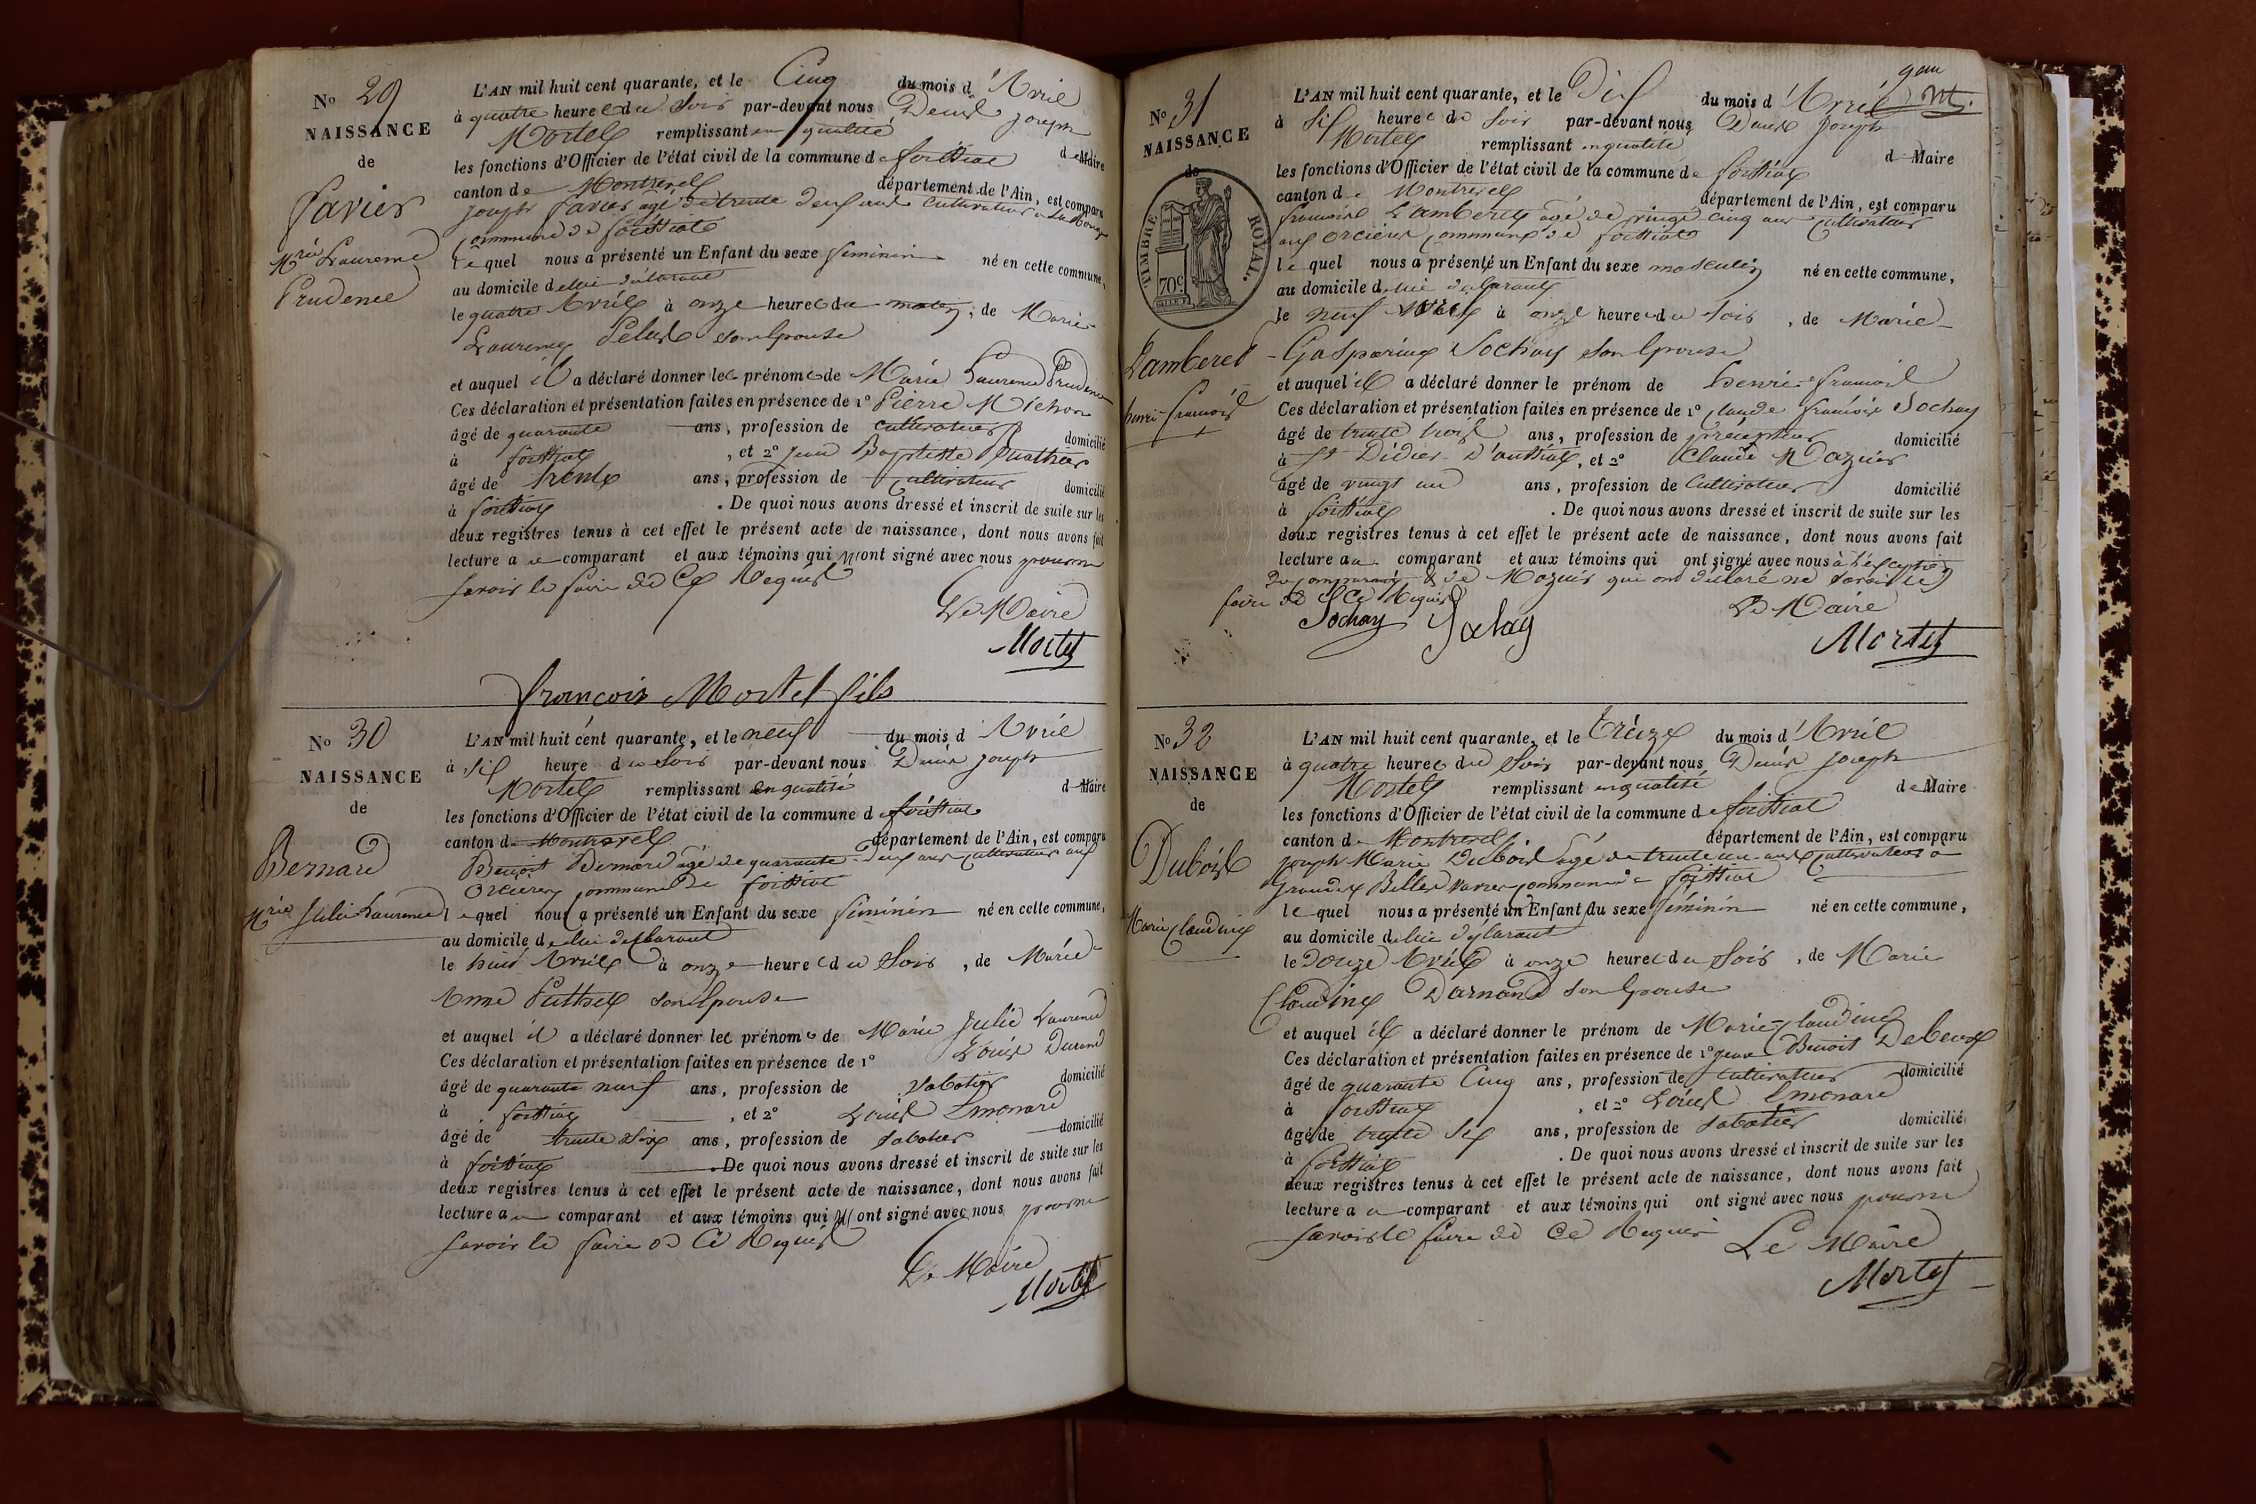 No 29
NAISSANCE
de
Favier
Mrie Laurence
Prudence
L'AN mil huit cent quarante, et le Cinq du mois d'Avril
à quatre heures du Soir par-devant nous Denis joseph
Mortel remplissant en qualité de Maire
les fonctions d'Officier de l'état civil de la commune de foissiat
canton de Montrevel département de l'Ain, est comparu
joseph favier agé de trente deux ans cultivateur
Commune de foissiat
Lequel nous a présenté un Enfant du sexe féminin né en cette commune,
au domicile de lui déclarant
le quatre Avril à onze heures du matin, de Marie
Laurence Pelus son épouse
et auquel il a déclaré donner les prénoms de Marie Laurence Prudence
Ces déclaration et présentation faites en présence de 1º Pierre Michon
âgé de quarante ans, profession de cultivateur domicilié
à foissiat, et 2º jean Baptiste
âgé de trente ans, profession de Cultivateur domicilié
à foissiat. De quoi nous avons dressé et inscrit de suite sur les
deux registres tenus à cet effet le présent acte de naissance, dont nous avons fait
lecture au comparant et aux témoins qui n'ont signé avec nous pour ne
savoir le faire de Ce Requis
Le Maire
Mortel
françois Mortel fils
No 30
NAISSANCE
de
Bernard
Mrie Julie Laurence
L'AN mil huit cent quarante, et le neuf du mois d'Avril
à Six heure du Soir par-devant nous Denis joseph
Mortel remplissant en qualité de Maire
les fonctions d'Officier de l'état civil de la commune de foissiat
canton de Montrevel département de l'Ain, est comparu
Benoit Bernard agé de quarante deux ans cultivateur aux
Orcieres commune de foissiat
Lequel nous a présenté un Enfant du sexe féminin né en cette commune,
au domicile de lui déclarant
le huit Avril à onze heures du Soir, de Marie
Anne Puthet son épouse
et auquel il a déclaré donner les prénoms de Marie Julie Laurence
Ces déclaration et présentation faites en présence de 1º Louis Durand
âgé de quarante neuf ans, profession de Sabotier domicilié
à foissiat, et 2º Louis Emonard
âgé de trente six ans, profession de Sabotier domicilié
à foissiat. De quoi nous avons dressé et inscrit de suite sur les
deux registres tenus à cet effet le présent acte de naissance, dont nous avons fait
lecture au comparant et aux témoins qui n'ont signé avec nous pour ne
savoir le faire de Ce Requis
Le Maire
Mortel
No 31
NAISSANCE
de
TIMBRE ROYAL.
70c.
Lamberet
henri françois
L'AN mil huit cent quarante, et le Dix du mois d'Avril
à Six heures du Soir par-devant nous Denis Joseph
Mortel remplissant en qualité de Maire
les fonctions d'Officier de l'état civil de la commune de foissiat
canton de Montrevel département de l'Ain, est comparu
françois Lamberet agé de vingt cinq ans Cultivateur
aux Orcières Commune de foissiat
lequel nous a présenté un Enfant du sexe masculin né en cette commune,
au domicile de lui déclarant
le neuf Avril à onze heures du Soir, de Marie
Gasparine Sochay son épouse
et auquel il a déclaré donner le prénom de henri françois
Ces déclaration et présentation faites en présence de 1º Claude françois Sochay
âgé de trente trois ans, profession de précepteur domicilié
à St Didier d'aussiat, et 2º Claude Mazuir
âgé de vingt un ans, profession de Cultivateur domicilié
à foissiat. De quoi nous avons dressé et inscrit de suite sur les
deux registres tenus à cet effet le présent acte de naissance, dont nous avons fait
lecture au comparant et aux témoins qui ont signé avec nous à l'exception
du comparant & de Mazuir qui ont déclaré ne savoir le
faire de Ce Requis
Sochay
Le Maire
Mortel
No 32
NAISSANCE
de
Dubois
Marie Claudine
L'AN mil huit cent quarante, et le treize du mois d'Avril
à quatre heures du Soir par-devant nous Denis Joseph
Mortel remplissant en qualité de Maire
les fonctions d'Officier de l'état civil de la commune de foissiat
canton de Montrevel département de l'Ain, est comparu
joseph Marie Dubois agé de trente un ans Cultivateur à
Grandes Belles Vavres commune de foissiat
lequel nous a présenté un Enfant du sexe féminin né en cette commune,
au domicile de lui déclarant
le Douze Avril à onze heures du Soir, de Marie
Claudine Darnand son épouse
et auquel il a déclaré donner le prénom de Marie Claudine
Ces déclaration et présentation faites en présence de 1º jean Benoit
âgé de quarante Cinq ans, profession de cultivateur domicilié
à foissiat, et 2º Louis Emonard
âgé de trente Six ans, profession de Sabotier domicilié
à foissiat. De quoi nous avons dressé et inscrit de suite sur les
deux registres tenus à cet effet le présent acte de naissance, dont nous avons fait
lecture au comparant et aux témoins qui ont signé avec nous pour ne
savoir le faire de Ce Requis
Le Maire
Mortel